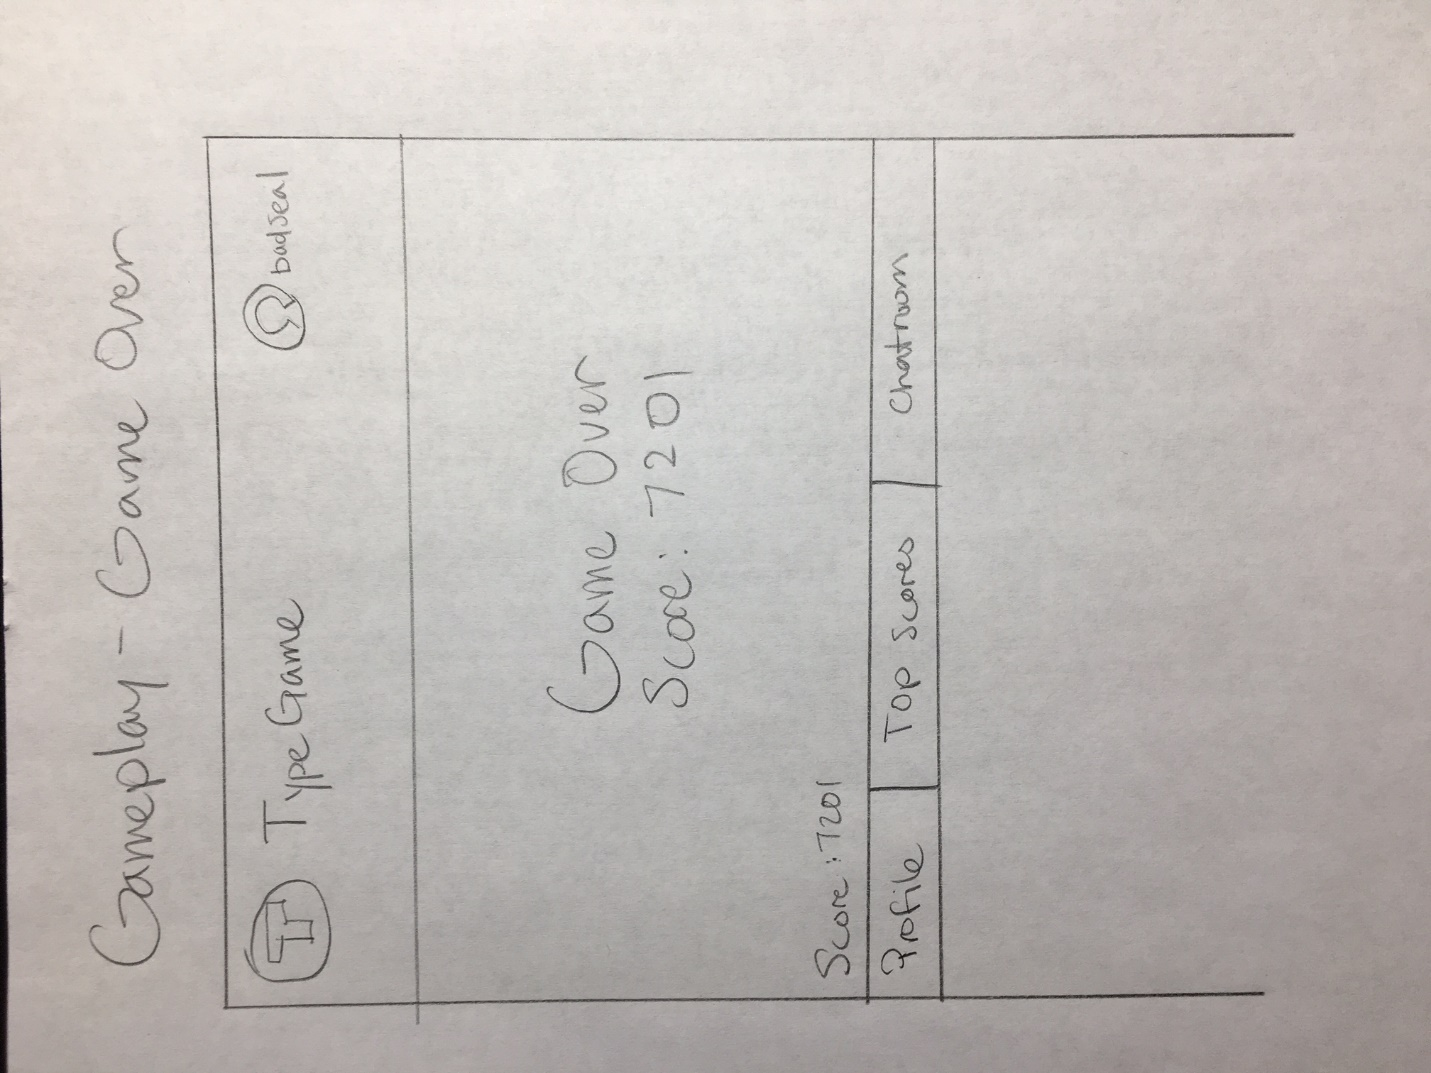 Gameplay - Game Over
T TypeGame badseal
Game Over
Score: 7201
Score: 7201
Profile Top Scores Chatroom